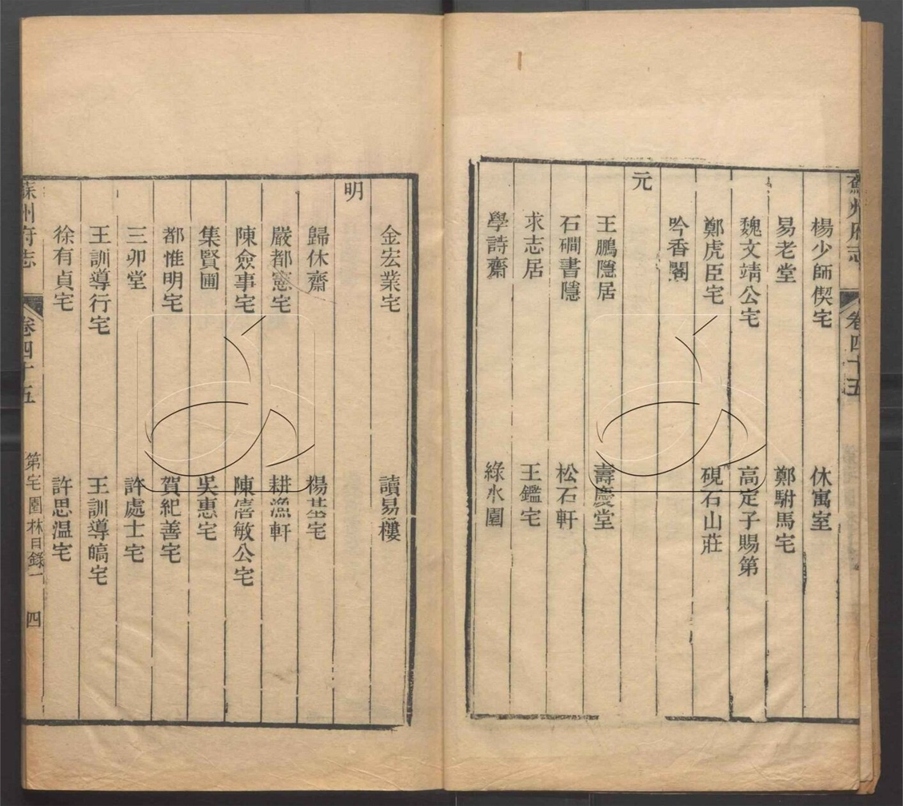 蘇州府志 卷四十五
楊少師偰宅 休寓室
易老堂 鄭駙馬宅
魏文靖公宅 高定子賜第
鄭虎臣宅 硯石山莊
吟香閣
元
王鵬隱居 壽慶堂
石磵書隱 松石軒
求志居 王鑑宅
學詩齋 綠水園
金宏業宅 讀易樓
明
歸休齋 楊基宅
嚴都憲宅 耕漁軒
陳僉事宅 陳僖敏公宅
集賢圃 吳惠宅
都惟明宅 賀紀善宅
三卯堂 許處士宅
王訓導行宅 王訓導皜宅
徐有貞宅 許思溫宅
蘇州府志 卷四十五 第宅園林目錄一 四